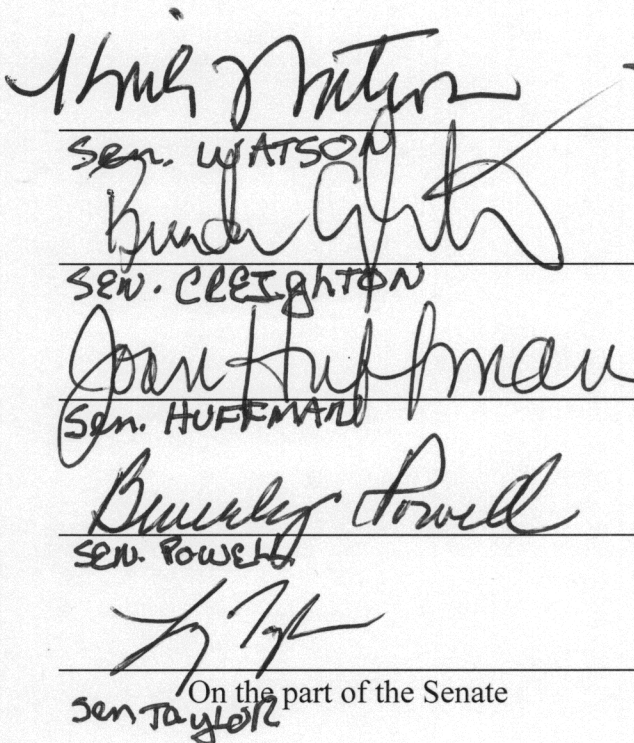 Kirk Watson
Sen. WATSON
Sen. CREIghTON
Joan Huffman
Sen. HUFFMAN
Beverly Powell
SEN. POWELL
On the part of the Senate
Sen TayLOR